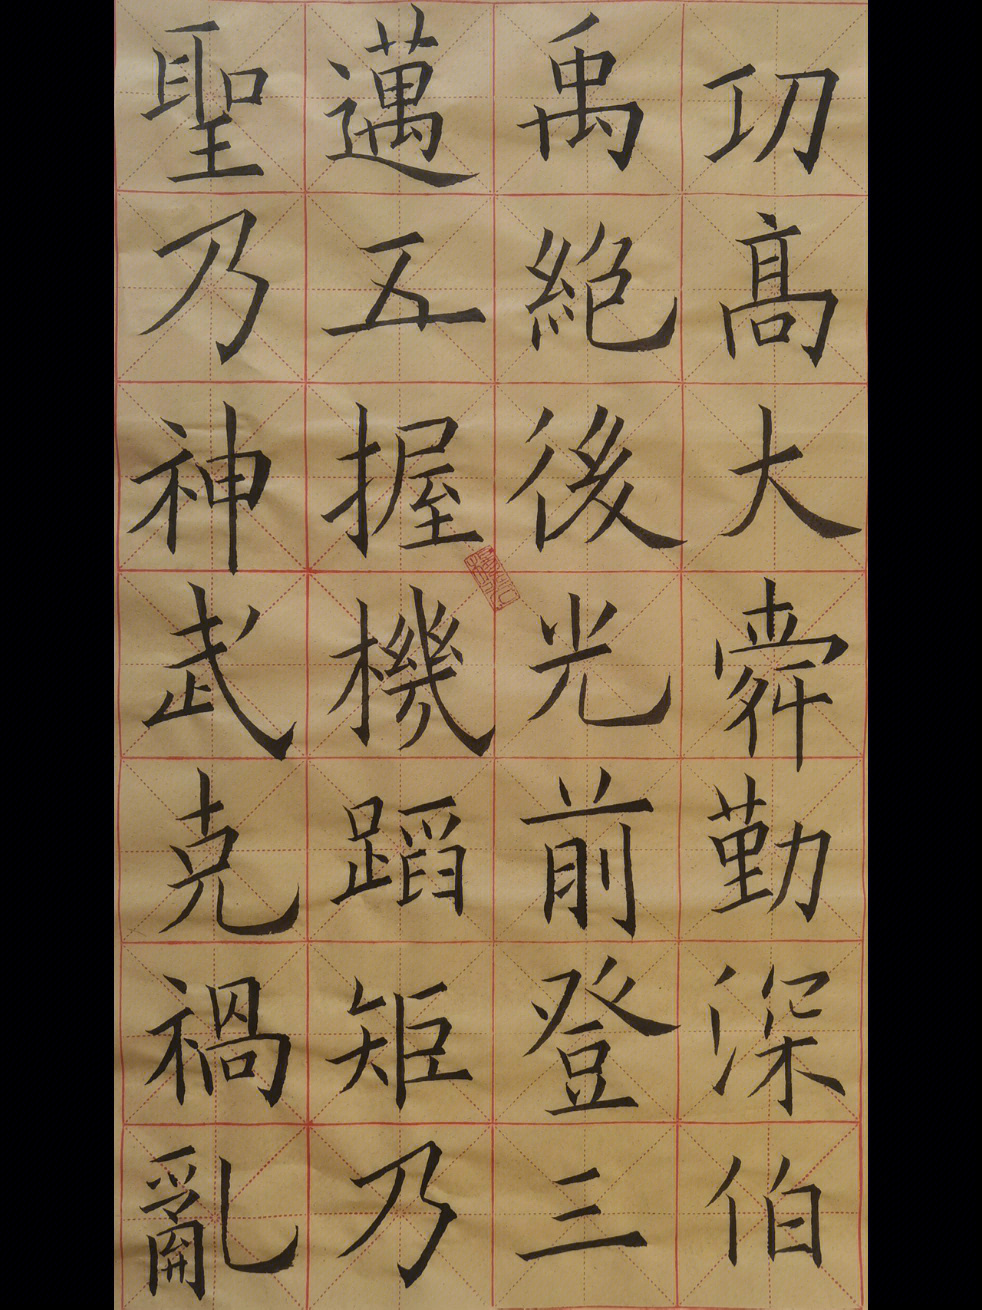 功高大舜勤深伯
禹絕後光前登三
邁五握機蹈矩乃
聖乃神武克禍亂